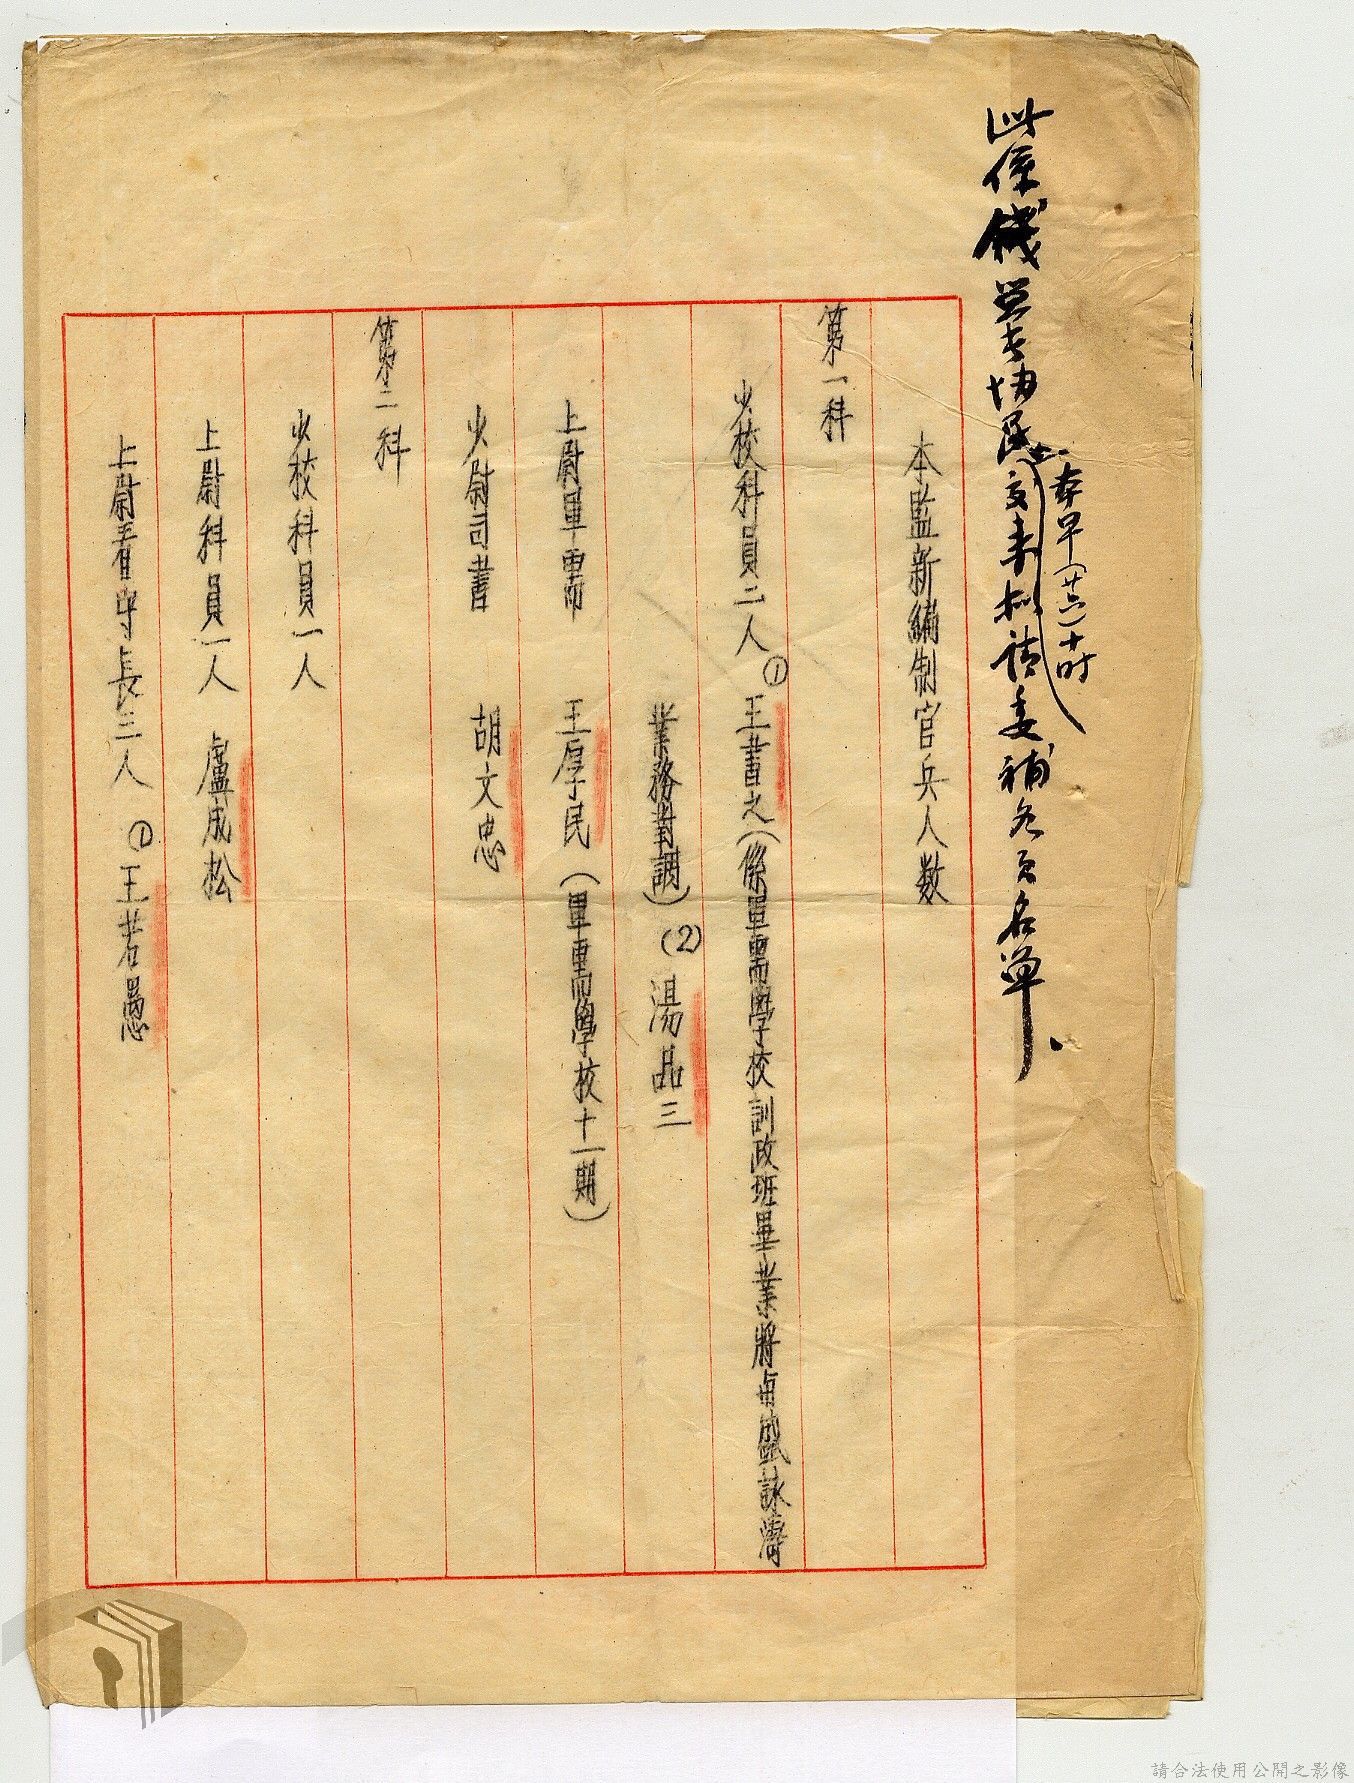 此係錢 協民 交來 請委補 名單
本早（廿六）十時
本監新編制官兵人数
第一科
少校科員二人①王書之（係軍需學校訓政班畢業將與盛詠濤
業務對調）(2)湯品三
上尉軍需 王厚民（軍需學校十一期）
少尉司書 胡文忠
第二科
少校科員一人
上尉科員一人 盧成松
上尉看守長三人 ①王若愚
請合法使用公開之影像